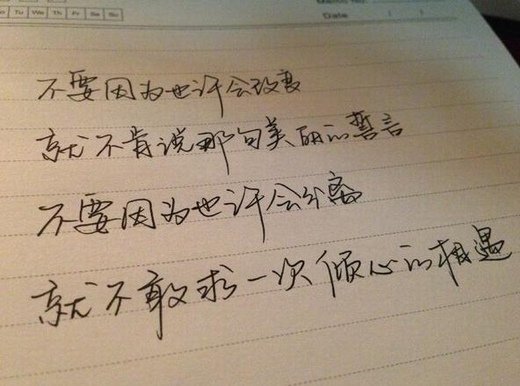 Tu We Th Fr Sa Su
Memo No.
Date / /
不要因为也许会改变
就不肯说那句美丽的誓言
不要因为也许会分离
就不敢求一次倾心的相遇